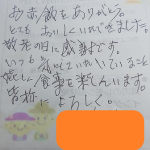 お赤飯をありがとう。
とても おいしくいただきました。
敬老の日に感謝です。
いつも気にしていただいていること
嬉しく食事を楽しんいます。
皆様によろしく。